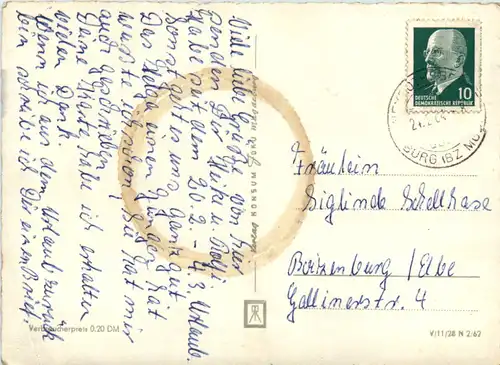 Viele liebe Grüße von hier
senden Dir Heike u. Rolf.
Habe seit dem 20.2. – 4.3. Urlaub.
Sonst geht es uns ganz gut.
Das Helga einen Jungen hat
weißt Du schon. Sie hat mir
auch geschrieben.
Deine Karte habe ich erhalten
vielen Dank.
Wenn ich aus dem Urlaub zurück
bin schreibe ich Dir einen Brief.
Verbraucherpreis 0.20 DM
10
DEUTSCHE
DEMOKRATISCHE REPUBLIK
BURG (BZ
Fräulein
Siglinde Schellhase
Boitzenburg / Elbe
Gallinerstr. 4
V/11/28 N 2/62